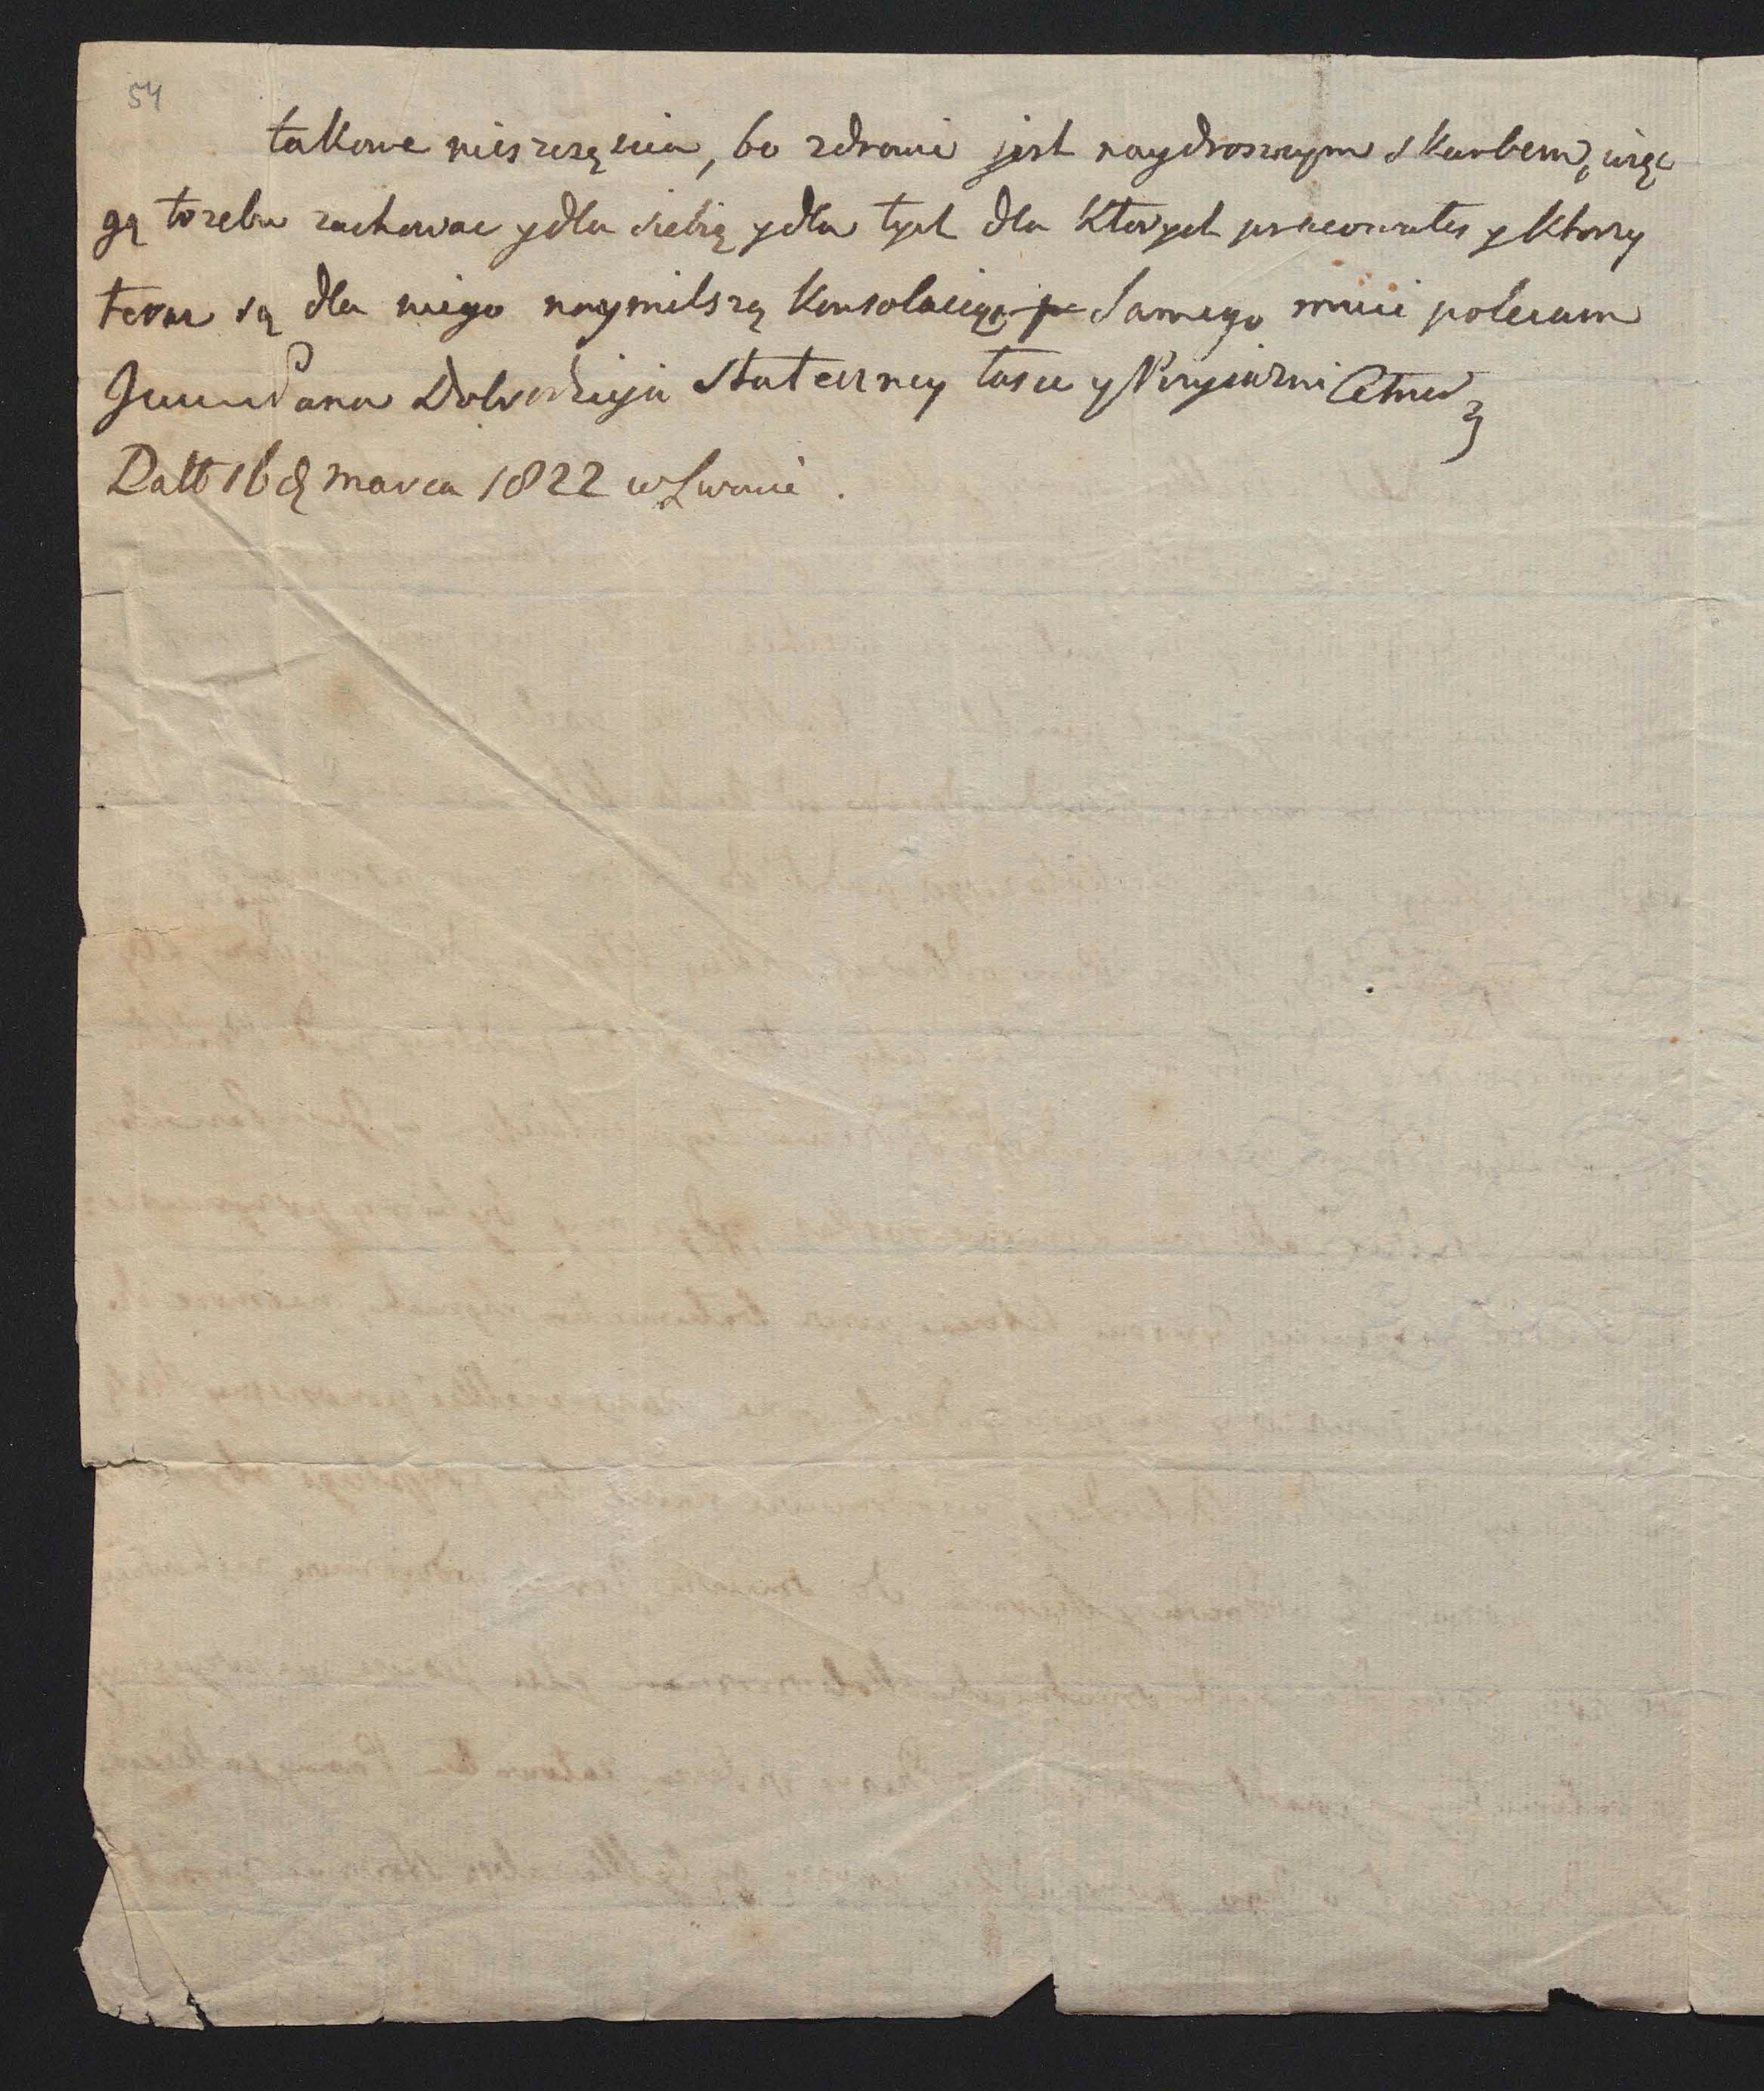 54
takowe nieszczęscia, bo zdrowie jest naydroszszym skarbem, więc
gą trzeba zachowac y dla siebię y dla tych dla ktorych pracowałes y ktorzy
teraz są dla niego naymilszą konsolacięą Samego mnie polecam
Dobrodzieja stateczney łasce y Przyjazni
Datt 16 marca 1822 w Lwowie.